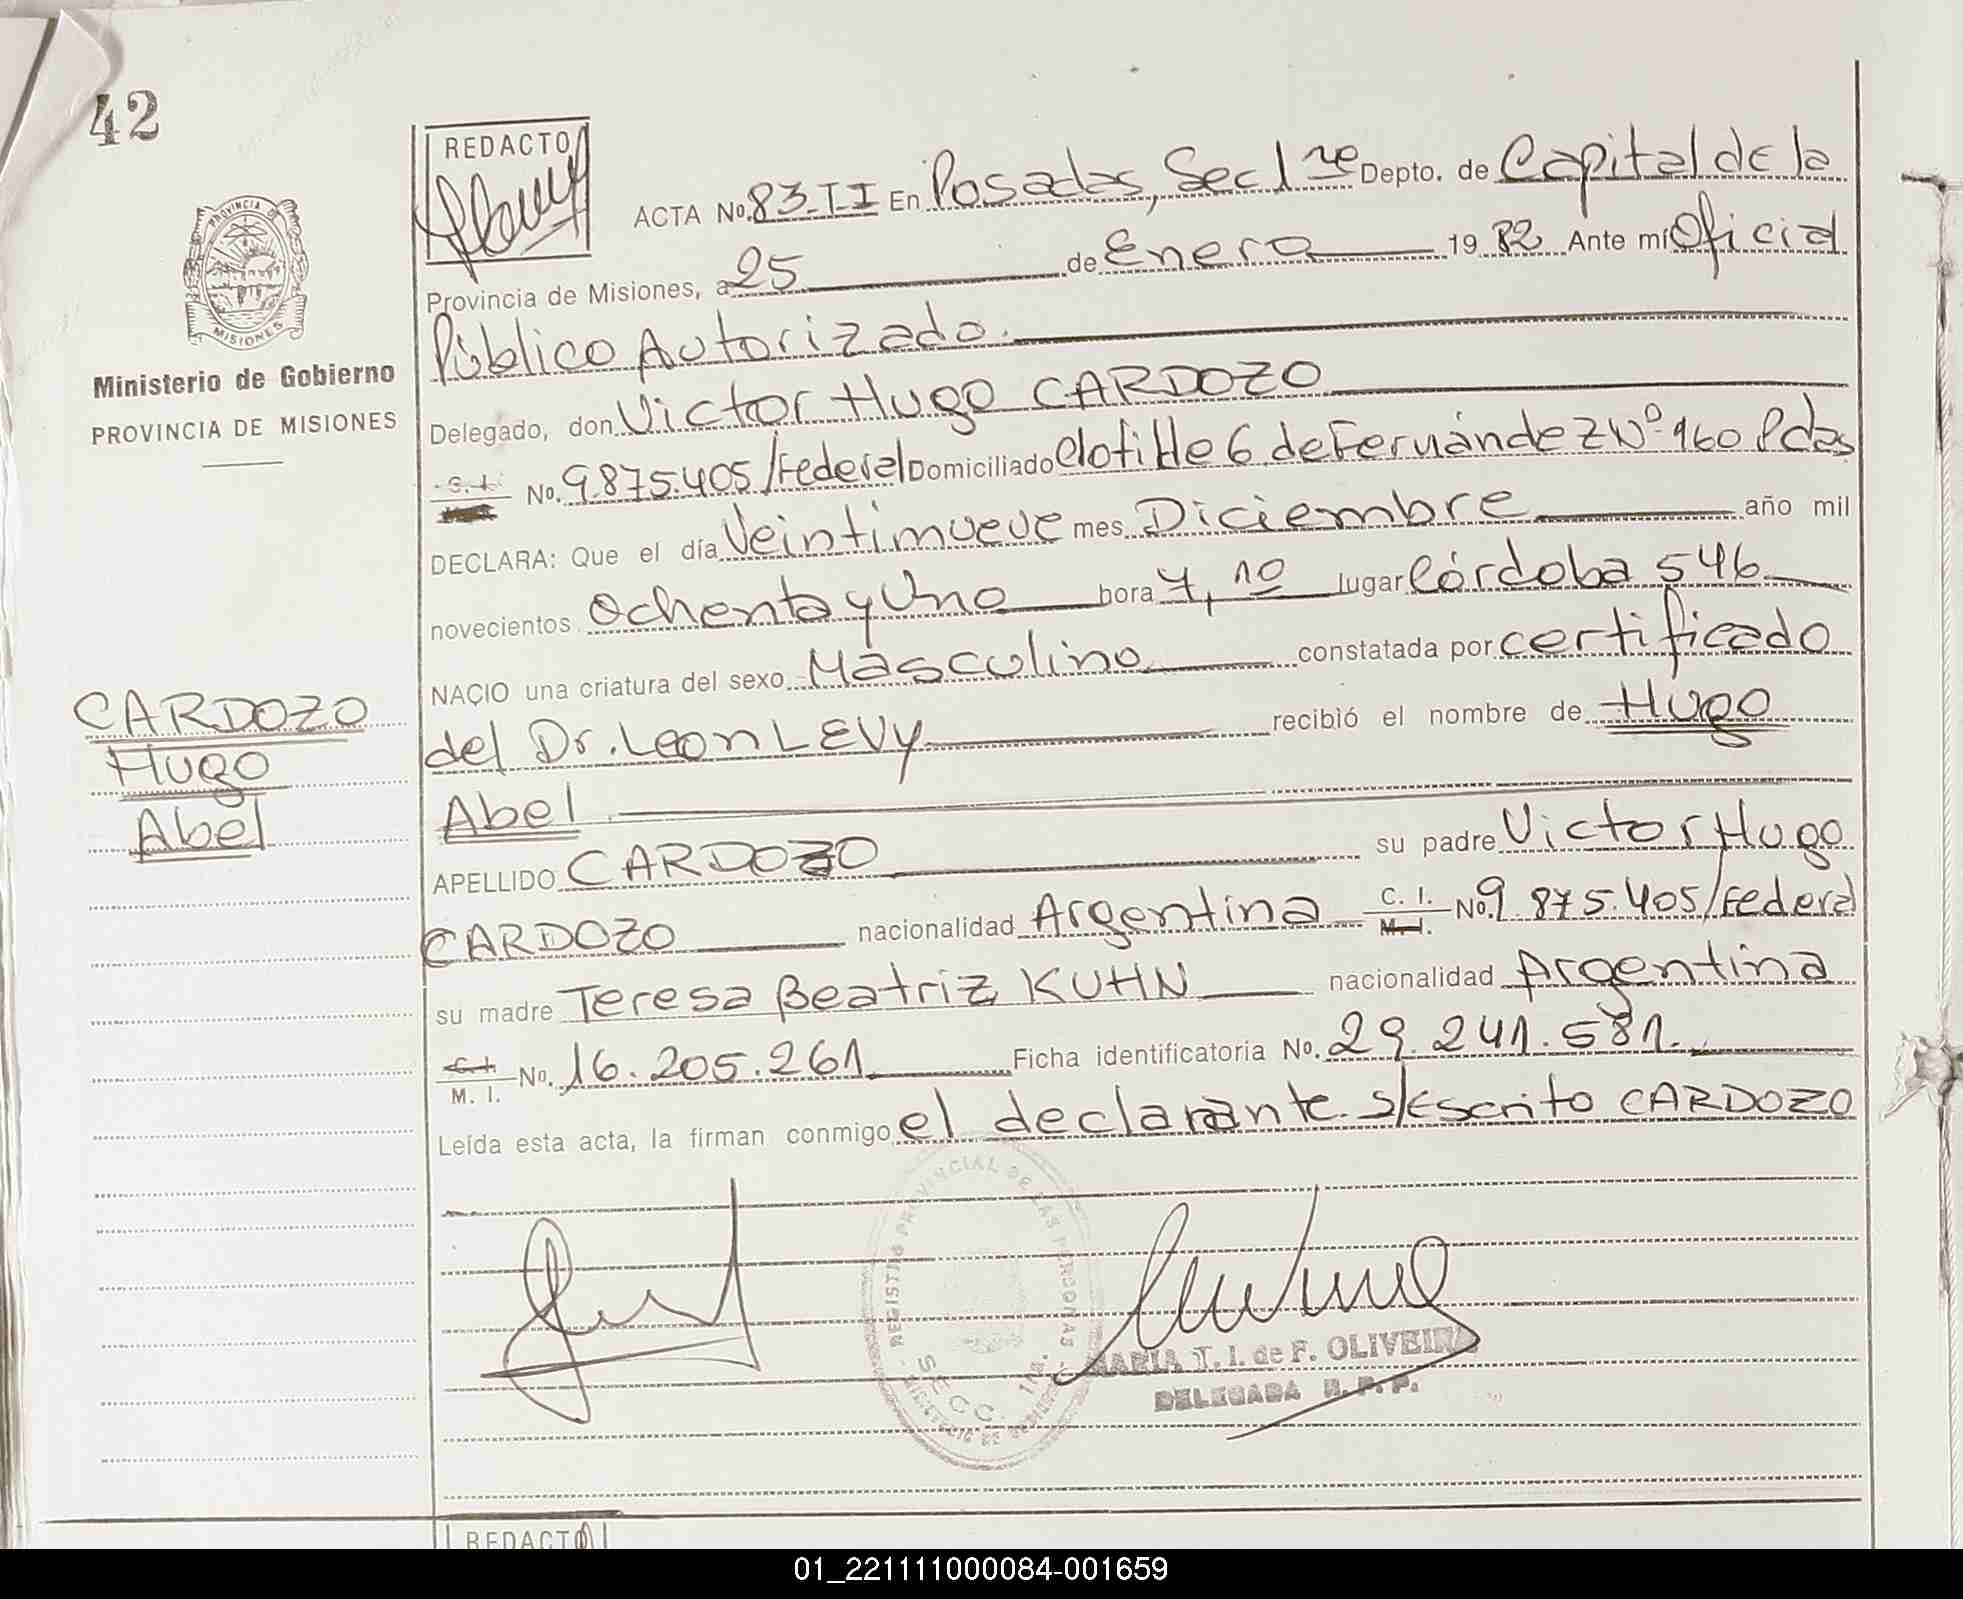 42
REDACTO
ACTA No. 83-T-I En Posadas, Sec 1ra Depto. de Capital de la
Provincia de Misiones, a 25 de Enero 19 82 Ante mí Oficial
Público Autorizado.
Delegado, don Victor Hugo CARDOZO
C. I. No. 9.875.405/Federal Domiciliado Clotilde G. de Fernández Nº 160 Pdas
DECLARA: Que el día Veintinueve mes Diciembre año mil
novecientos ochenta y Uno hora 7,10 lugar Córdoba 546
NACIO una criatura del sexo Masculino constatada por certificado
del Dr. Leon LEVY recibió el nombre de Hugo
Abel
APELLIDO CARDOZO su padre Victor Hugo
CARDOZO nacionalidad Argentina C. I. M. I. No. 9.875.405/Federal
su madre Teresa Beatriz KUHN nacionalidad Argentina
C. I. M. I. No. 16.205.261 Ficha identificatoria No. 29.241.581.
Leída esta acta, la firman conmigo el declarante. s/Escrito CARDOZO
PROVINCIA DE
MISIONES
Ministerio de Gobierno
PROVINCIA DE MISIONES
CARDOZO
Hugo
Abel
REGISTRO PROVINCIAL DE LAS PERSONAS
SECC. 1ra.
MARIA T. I. de F. OLIVEIRA
DELEGADA R. P. P.
REDACTO
01_221111000084-001659